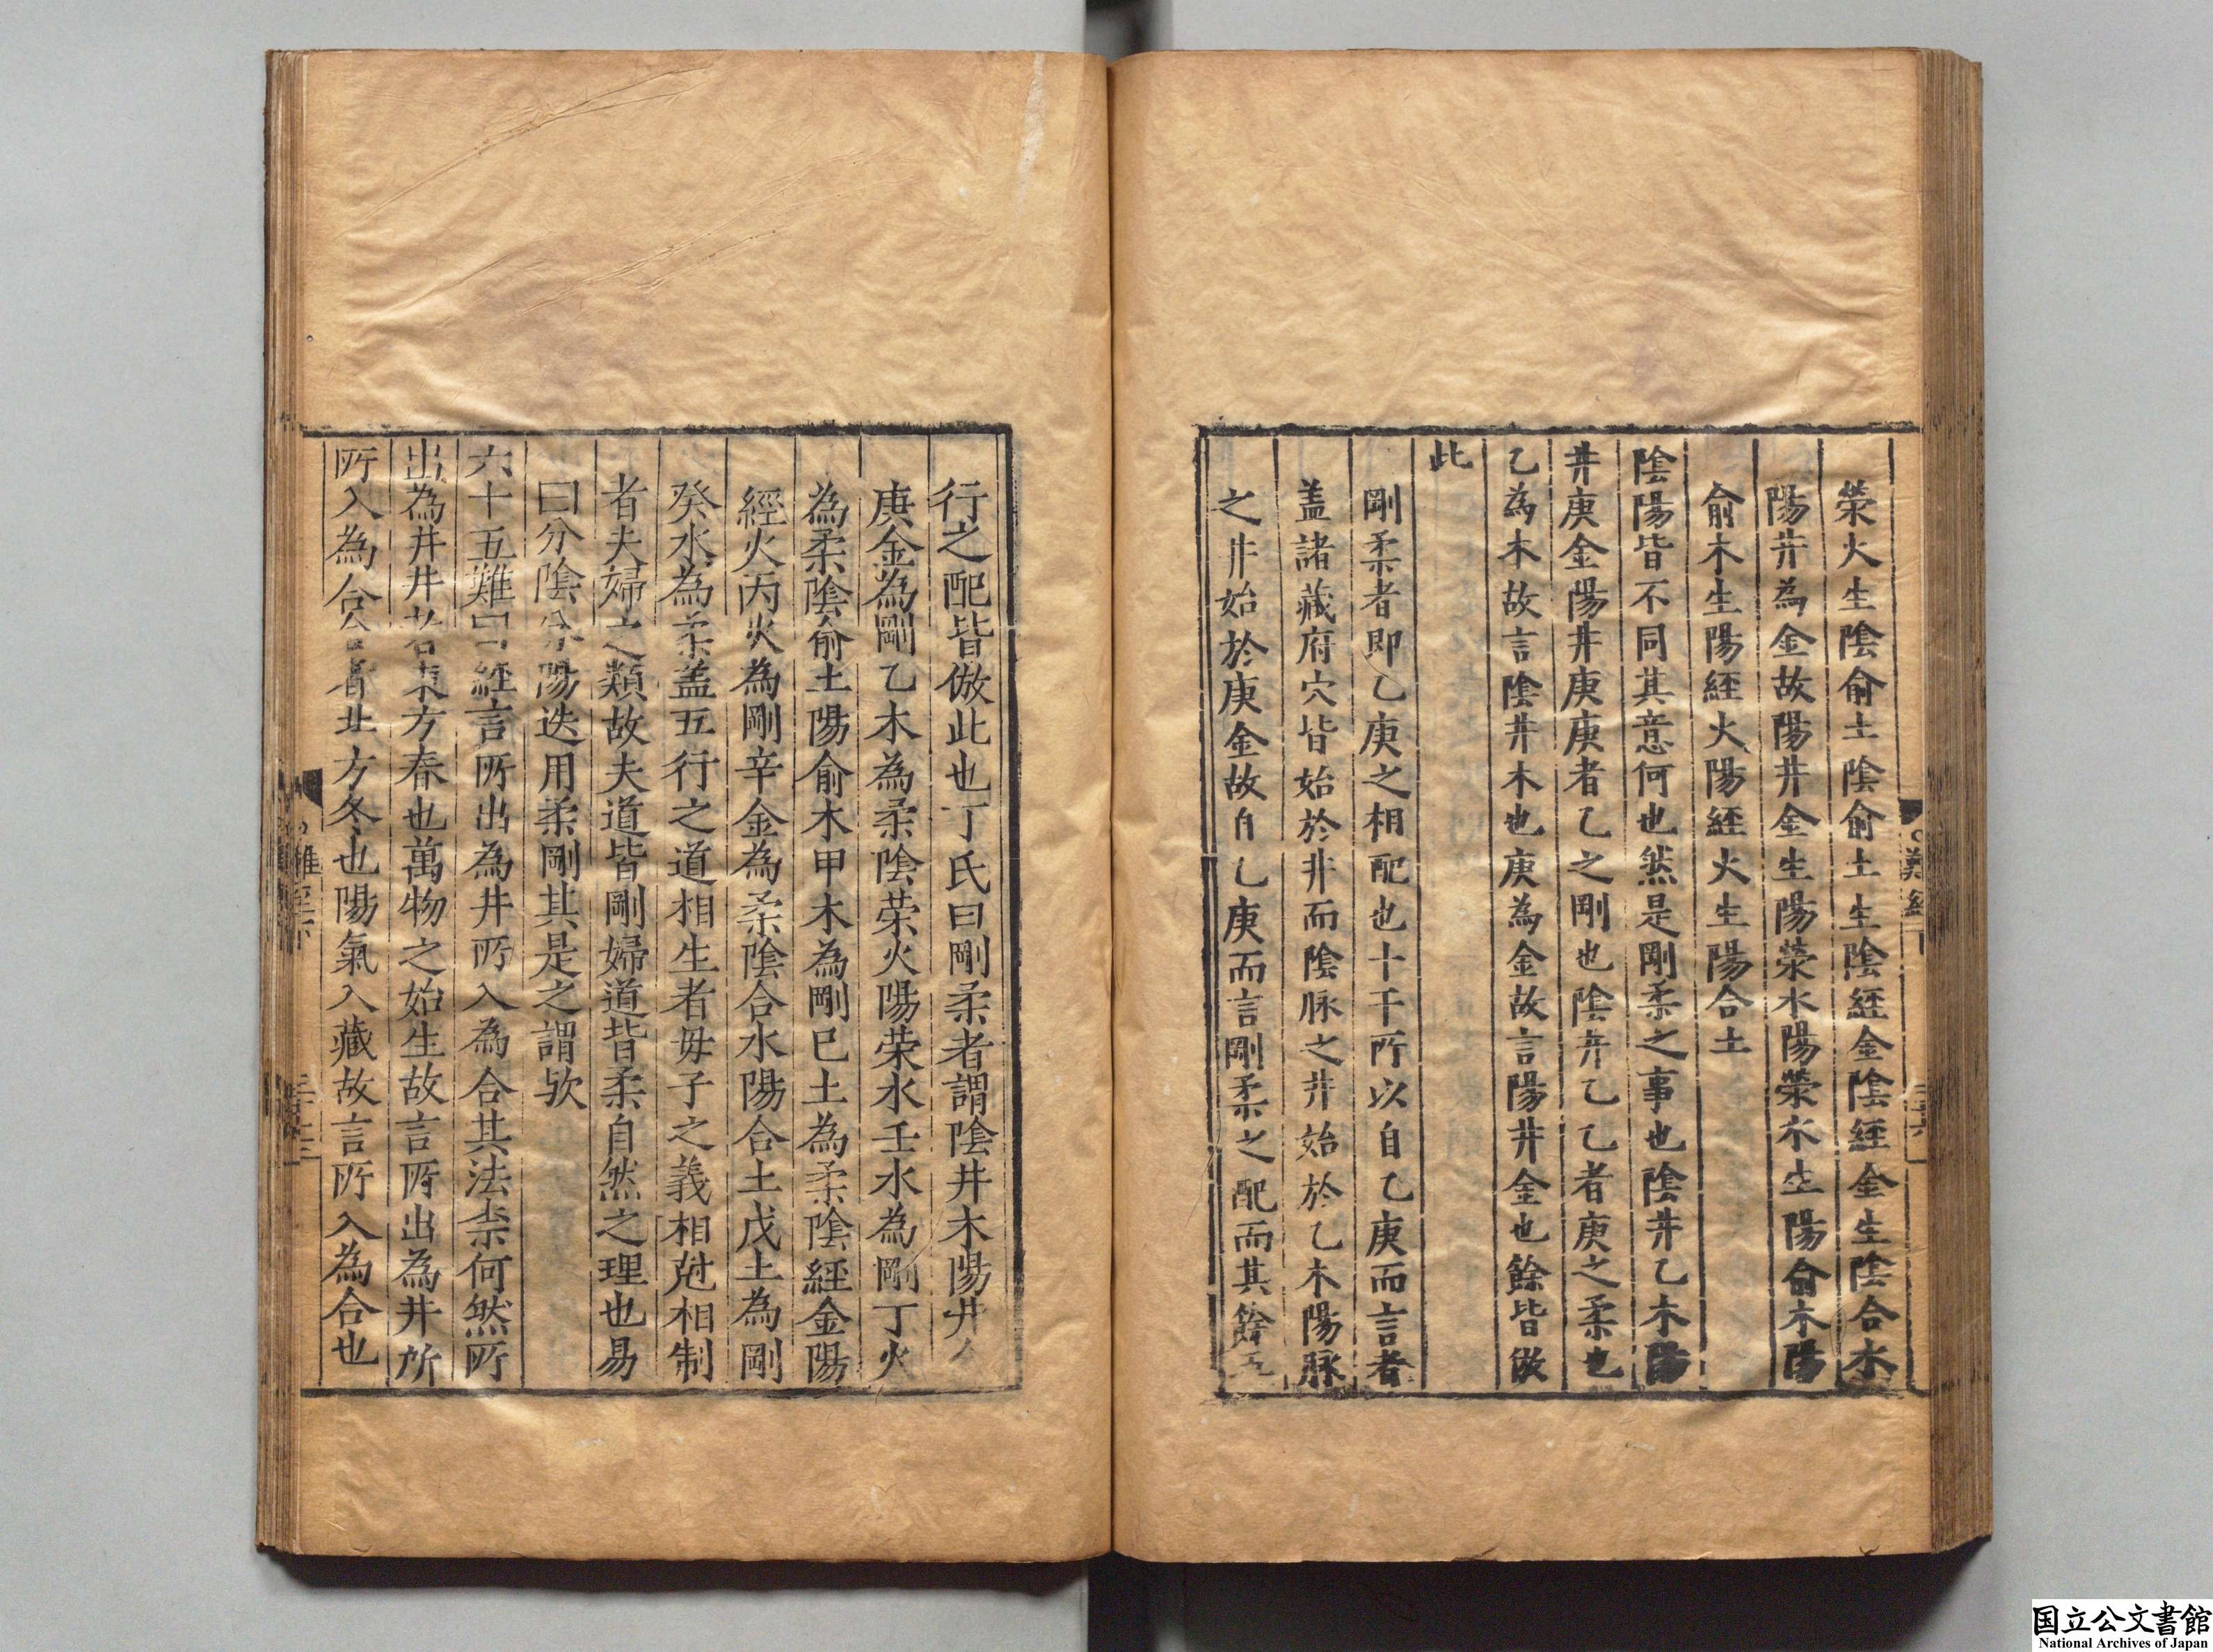 滎火生陰俞土陰俞土生陰經金陰經金生陰合水
陽井為金故陽井金生陽滎水陽滎水生陽俞木陽
俞木生陽經火陽經火生陽合土
陰陽皆不同其意何也然是剛柔之事也陰井乙木陽
井庚金陽井庚庚者乙之剛也陰井乙乙者庚之柔也
乙為木故言陰井木也庚為金故言陽井金也餘皆倣
此
剛柔者即乙庚之相配也十干所以自乙庚而言者
盖諸藏府穴皆始於井而陰脉之井始於乙木陽脉
之井始於庚金故自乙庚而言剛柔之配而其餘五
行之配皆倣此也丁氏曰剛柔者謂陰井木陽井
庚金為剛乙木為柔陰荣火陽荣水壬水為剛丁火
為柔陰俞土陽俞木甲木為剛巳土為柔陰經金陽
經火丙火為剛辛金為柔陰合水陽合土戊土為剛
癸水為柔盖五行之道相生者毋子之義相尅相制
者夫婦之類故夫道皆剛婦道皆柔自然之理也易
曰分陰分陽迭用柔剛其是之謂欤
六十五難曰經言所出為井所入為合其法柰何然所
出為井井者東方春也萬物之始生故言所出為井所
所入為合合者北方冬也陽氣入藏故言所入為合也
國立公文書館
National Archives of Japan